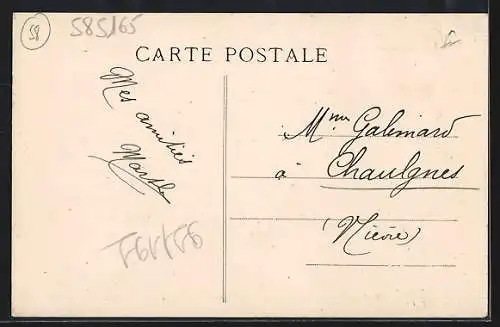 58
585/65
CARTE POSTALE
Mes amitiés
Marthe
Mme Galimard
à Chaulgnes
(Nièvre)